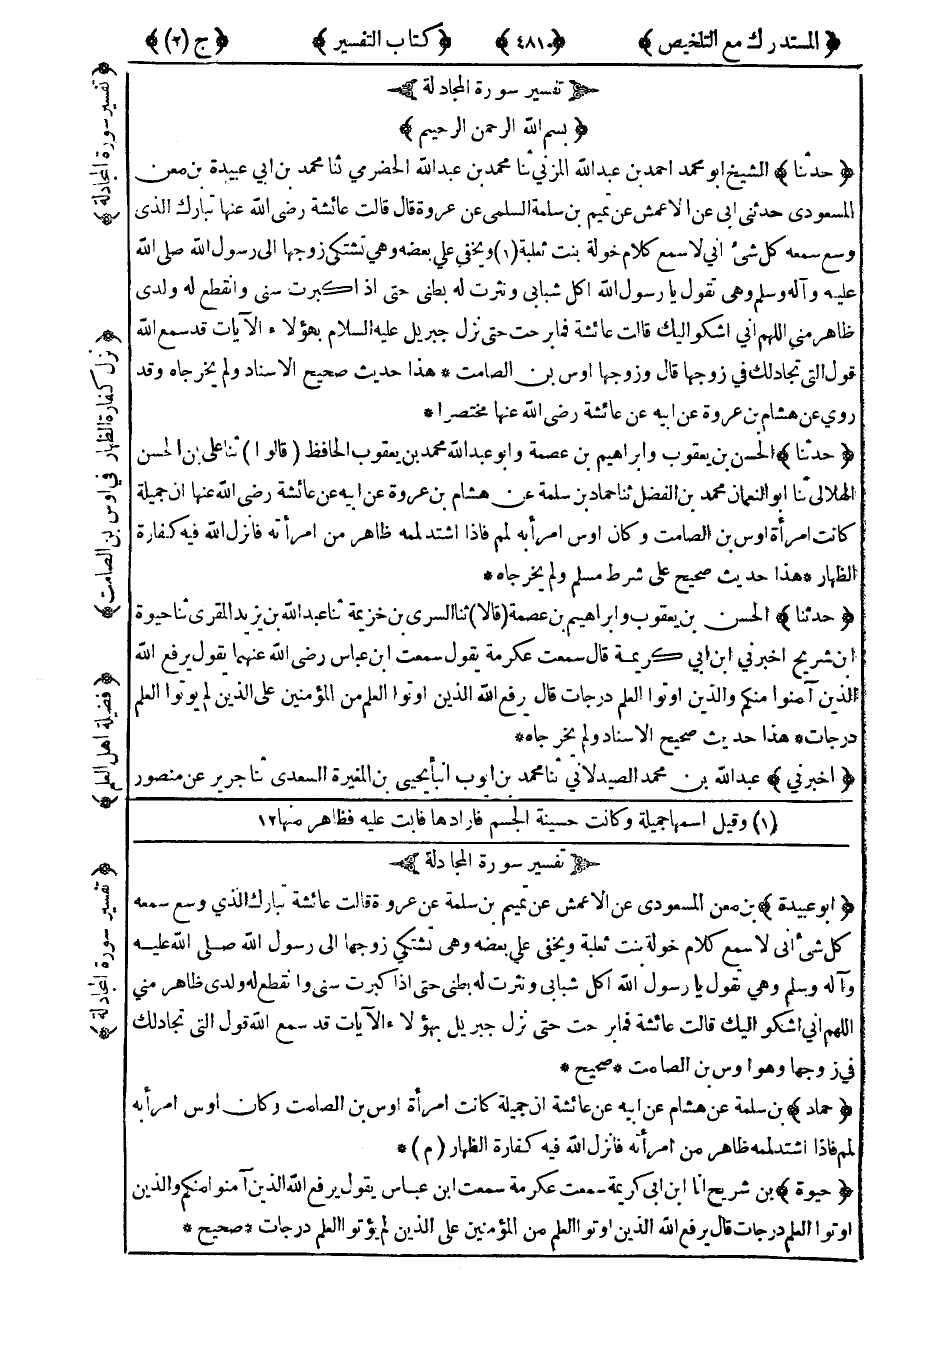 ﴿المستدرك مع التلخيص﴾ ﴿٤٨١﴾ ﴿كتاب التفسير﴾ ﴿ج (٢)﴾
تفسير سورة المجادلة
﴿ بسم الله الرحمن الرحيم ﴾
﴿ حدثنا ﴾ الشيخ ابو محمد احمد بن عبدالله المزني ثنا محمد بن عبدالله الحضرمي ثنا محمد بن ابي عبيدة بن معن
المسعودى حدثنى ابى عن الاعمش عن تميم بن سلمة السلمى عن عروة قال قالت عائشة رضى الله عنها تبارك الذى
وسع سمعه كل شئ اني لاسمع كلام خولة بنت ثعلبة (١) ويخفي علي بعضه وهي تشتكي زوجها الى رسول الله صلى الله
عليه وآله وسلم وهى تقول يا رسول الله اكل شبابى ونثرت له بطنى حتى اذا كبرت سنى وانقطع له ولدى
ظاهر مني اللهم اني اشكو اليك قالت عائشة فما برحت حتى نزل جبريل عليه السلام بهؤلاء الآيات قد سمع الله
قول التى تجادلك في زوجها قال وزوجها اوس بن الصامت * هذا حديث صحيح الاسناد ولم يخرجاه وقد
روي عن هشام بن عروة عن ابيه عن عائشة رضى الله عنها مختصرا *
﴿ حدثنا ﴾ الحسن بن يعقوب وابراهيم بن عصمة وابو عبدالله محمد بن يعقوب الحافظ (قالوا) ثنا على بن الحسن
الهلالى ثنا ابو النعمان محمد بن الفضل ثنا حماد بن سلمة عن هشام بن عروة عن ابيه عن عائشة رضى الله عنها ان جميلة
كانت امرأة اوس بن الصامت وكان اوس امرأ به لمم فاذا اشتد لممه ظاهر من امرأته فانزل الله فيه كفارة
الظهار * هذا حديث صحيح على شرط مسلم ولم يخرجاه *
﴿ حدثنا ﴾ الحسن بن يعقوب وابراهيم بن عصمة (قالا) ثنا السرى بن خزيمة ثنا عبدالله بن يزيد المقرى ثنا حيوة
ابن شريح اخبرني ابن ابي كريمة قال سمعت عكرمة يقول سمعت ابن عباس رضى الله عنهما يقول يرفع الله
الذين آمنوا منكم والذين اوتوا العلم درجات قال يرفع الله الذين اوتوا العلم من المؤمنين على الذين لم يوتوا العلم
درجات * هذا حديث صحيح الاسناد ولم يخرجاه *
﴿ اخبرني ﴾ عبدالله بن محمد الصيدلاني ثنا محمد بن ايوب انبأ يحيى بن المغيرة السعدى ثنا جرير عن منصور
(١) وقيل اسمها جميلة وكانت حسينة الجسم فارادها فابت عليه فظاهر منها ١٢
تفسير سورة المجادلة
﴿ ابو عبيدة ﴾ بن معن المسعودى عن الاعمش عن تميم بن سلمة عن عروة قالت عائشة تبارك الذي وسع سمعه
كل شئ انى لاسمع كلام خولة بنت ثعلبة ويخفى علي بعضه وهى تشتكي زوجها الى رسول الله صلى الله عليه
وآله وسلم وهي تقول يا رسول الله اكل شبابى ونثرت له بطنى حتى اذا كبرت سنى وانقطع له ولدى ظاهر مني
اللهم انى اشكو اليك قالت عائشة فما برحت حتى نزل جبريل بهؤلاء الآيات قد سمع الله قول التى تجادلك
في زوجها وهو اوس بن الصامت * صحيح *
﴿ حماد ﴾ بن سلمة عن هشام عن ابيه عن عائشة ان جميلة كانت امرأة اوس بن الصامت وكان اوس امرأ به
لمم فاذا اشتد لممه ظاهر من امرأته فانزل الله فيه كفارة الظهار (م) *
﴿ حيوة ﴾ بن شريح انا ابن ابى كريمة سمعت عكرمة سمعت ابن عباس يقول يرفع الله الذين آمنوا منكم والذين
اوتوا العلم درجات قال يرفع الله الذين اوتوا العلم من المؤمنين على الذين لم يؤتوا العلم درجات * صحيح *
﴿ تفسير سورة المجادلة ﴾
﴿ نزل كفارة الظهار في اوس بن الصامت ﴾
﴿ فضيلة اهل العلم ﴾
﴿ تفسير سورة المجادلة ﴾